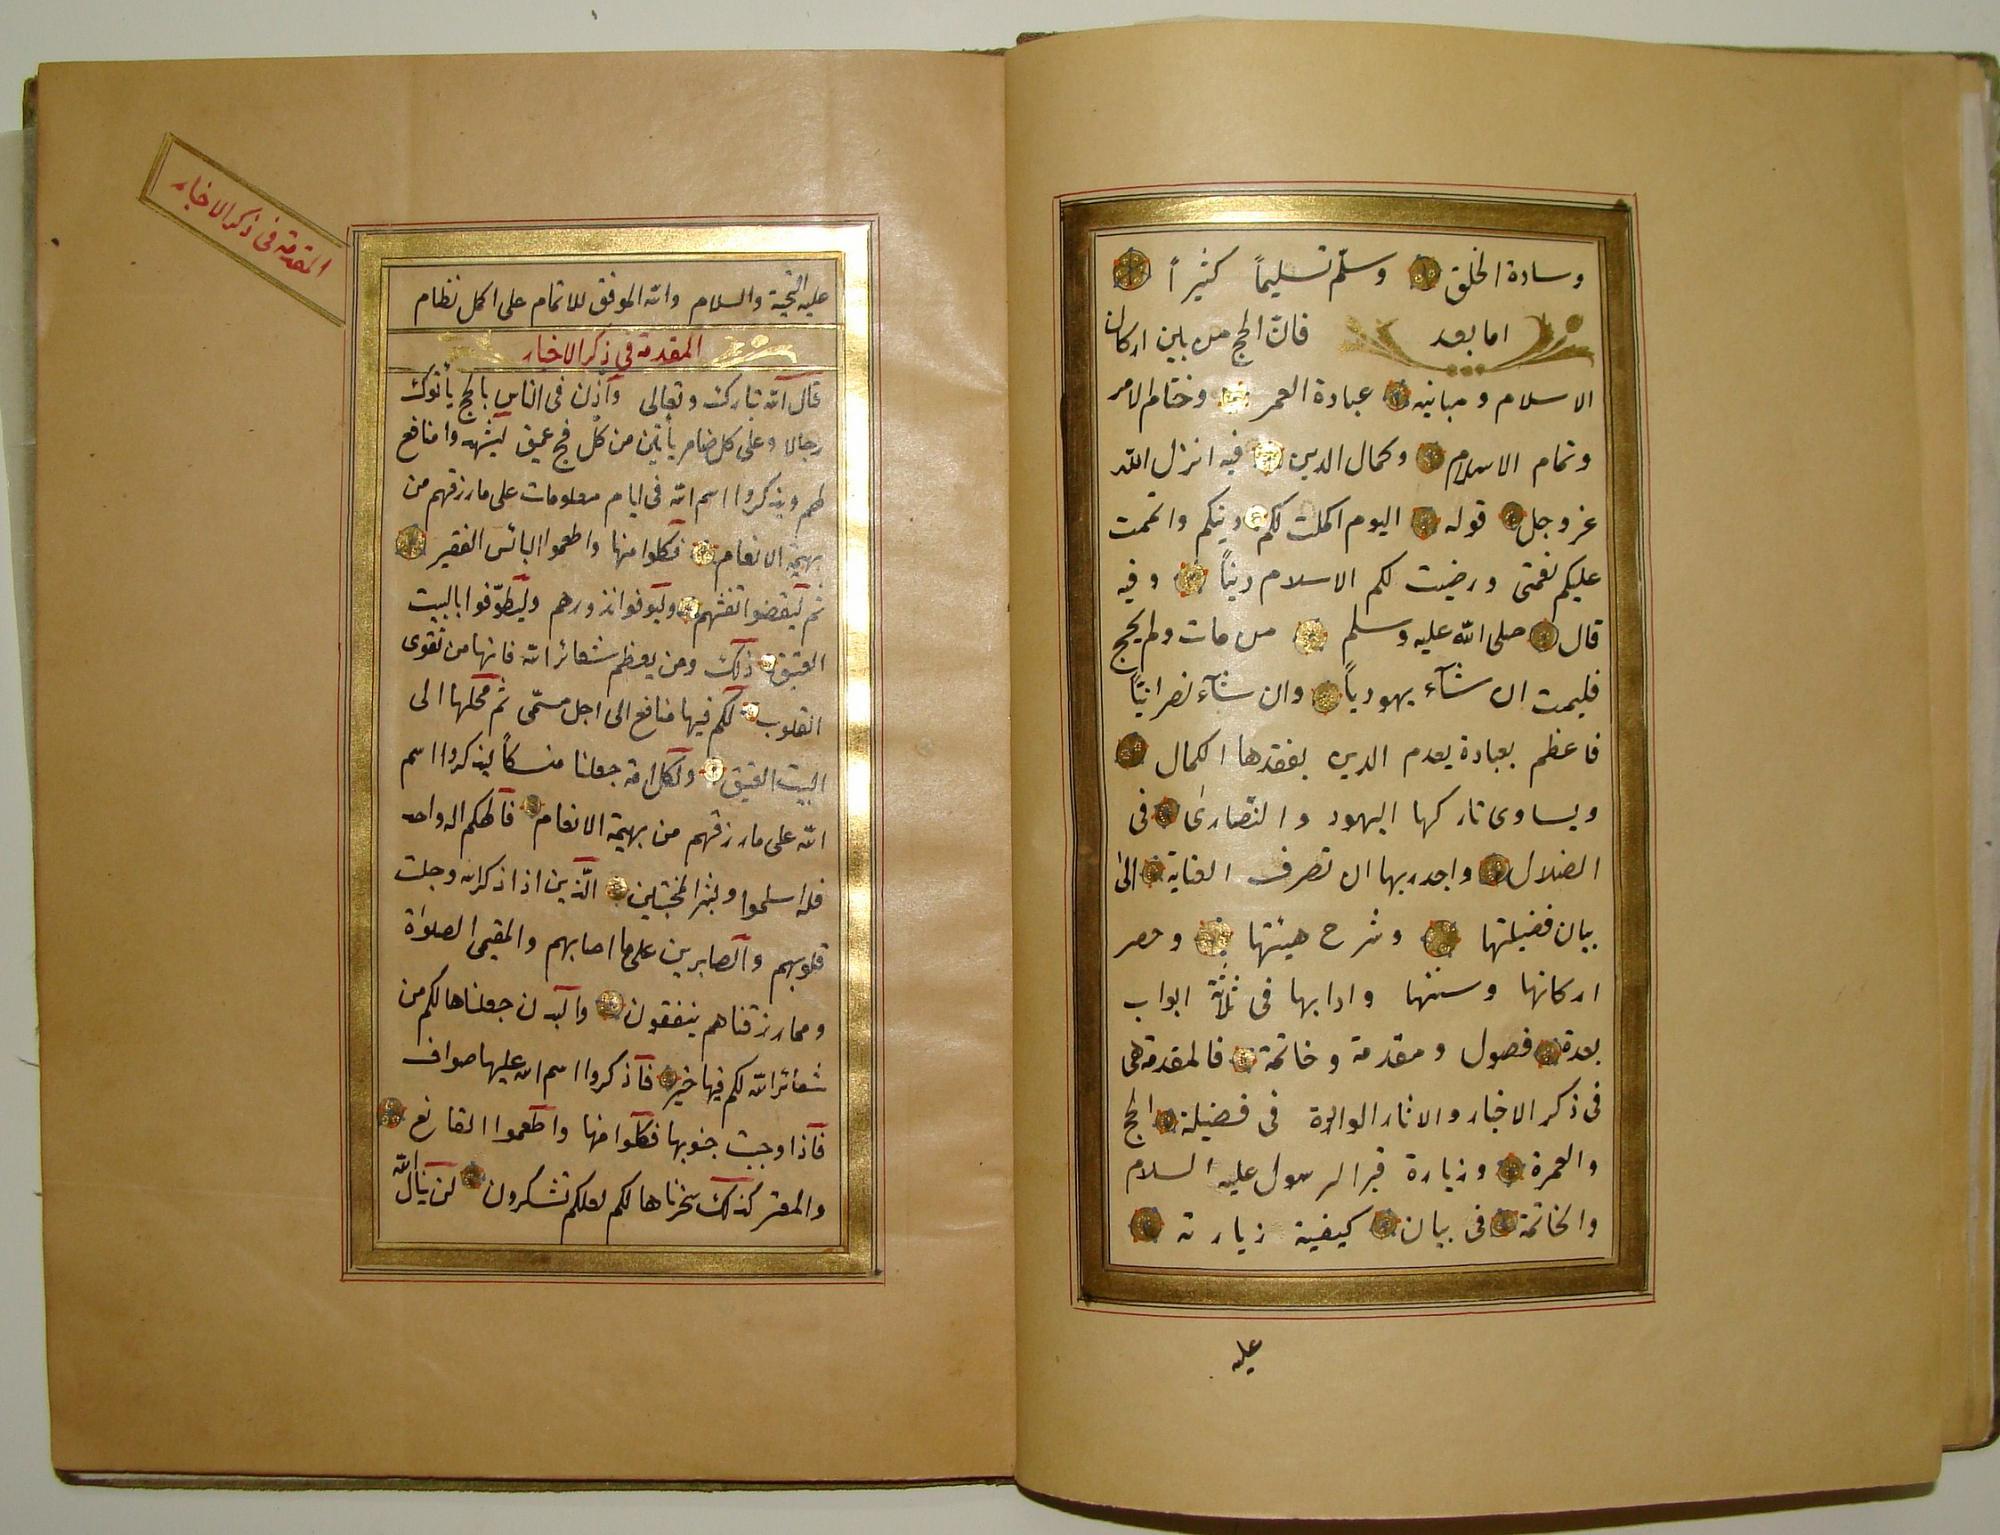 وسادة الخلق وسلّم تسليماً كثيراً
اما بعد فانّ الحج من بين اركان
الاسلام ومبانيه عبادة العمر وختام الامر
وتمام الاسلام وكمال الدين فيه انزل الله
عز وجل قوله اليوم اكملت لكم دينكم واتممت
عليكم نعمتى ورضيت لكم الاسلام ديناً وفيه
قال صلى الله عليه وسلم من مات ولم يحج
فليمت ان شآء يهودياً وان شآء نصرانيّاً
فاعظم بعبادة يعدم الدين بفقدها الكمال
ويساوى تاركها اليهود والنّصارىٰ فى
الضلال واجدر بها ان تصرف العناية الىٰ
بيان فضيلتها وشرح هيئتها وحصر
اركانها وسننها وادابها فى ثلٰثة ابواب
بعدة فصول ومقدمة وخاتمة فالمقدمة هى
فى ذكر الاخبار والاثار الواردة فى فضيلة الحج
والعمرة وزيارة قبر الرسول عليه السلام
والخاتمة فى بيان كيفية زيارته
عليه
المقدمة فى ذكر الاخبار
عليه التحية والسلام والله الموفق للاتمام على اكمل نظام
المقدمة فى ذكر الاخبار
قال الله تبارك وتعالى وآذن فى الناس بالحج يأتوك
رجالا وعلى كل ضامر يأتين من كلّ فج عميق ليشهدوا منافع
لهم ويذكروا اسم الله فى ايام معلومات على ما رزقهم من
بهيمة الانعام فكلوا منها واطعموا البائس الفقير
ثم ليقضوا تفثهم وليوفوا نذورهم وليطوّفوا بالبيت
العتيق ذلك ومن يعظم شعائر الله فانها من تقوى
القلوب لكم فيها منافع الى اجل مسمّى ثم محلها الى
البيت العتيق ولكل امة جعلنا منسكاً ليذكروا اسم
الله على ما رزقهم من بهيمة الانعام فالهكم اله واحد
فله اسلموا وبشر المخبتين الّذين اذا ذكر الله وجلت
قلوبهم والصابرين على ما اصابهم والمقيمى الصلوٰة
ومما رزقناهم ينفقون والبدن جعلناها لكم من
شعائر الله لكم فيها خير فاذكروا اسم الله عليها صواف
فاذا وجبت جنوبها فكلوا منها واطعموا القانع
والمعتر كذلك سخرناها لكم لعلكم تشكرون لن ينال الله